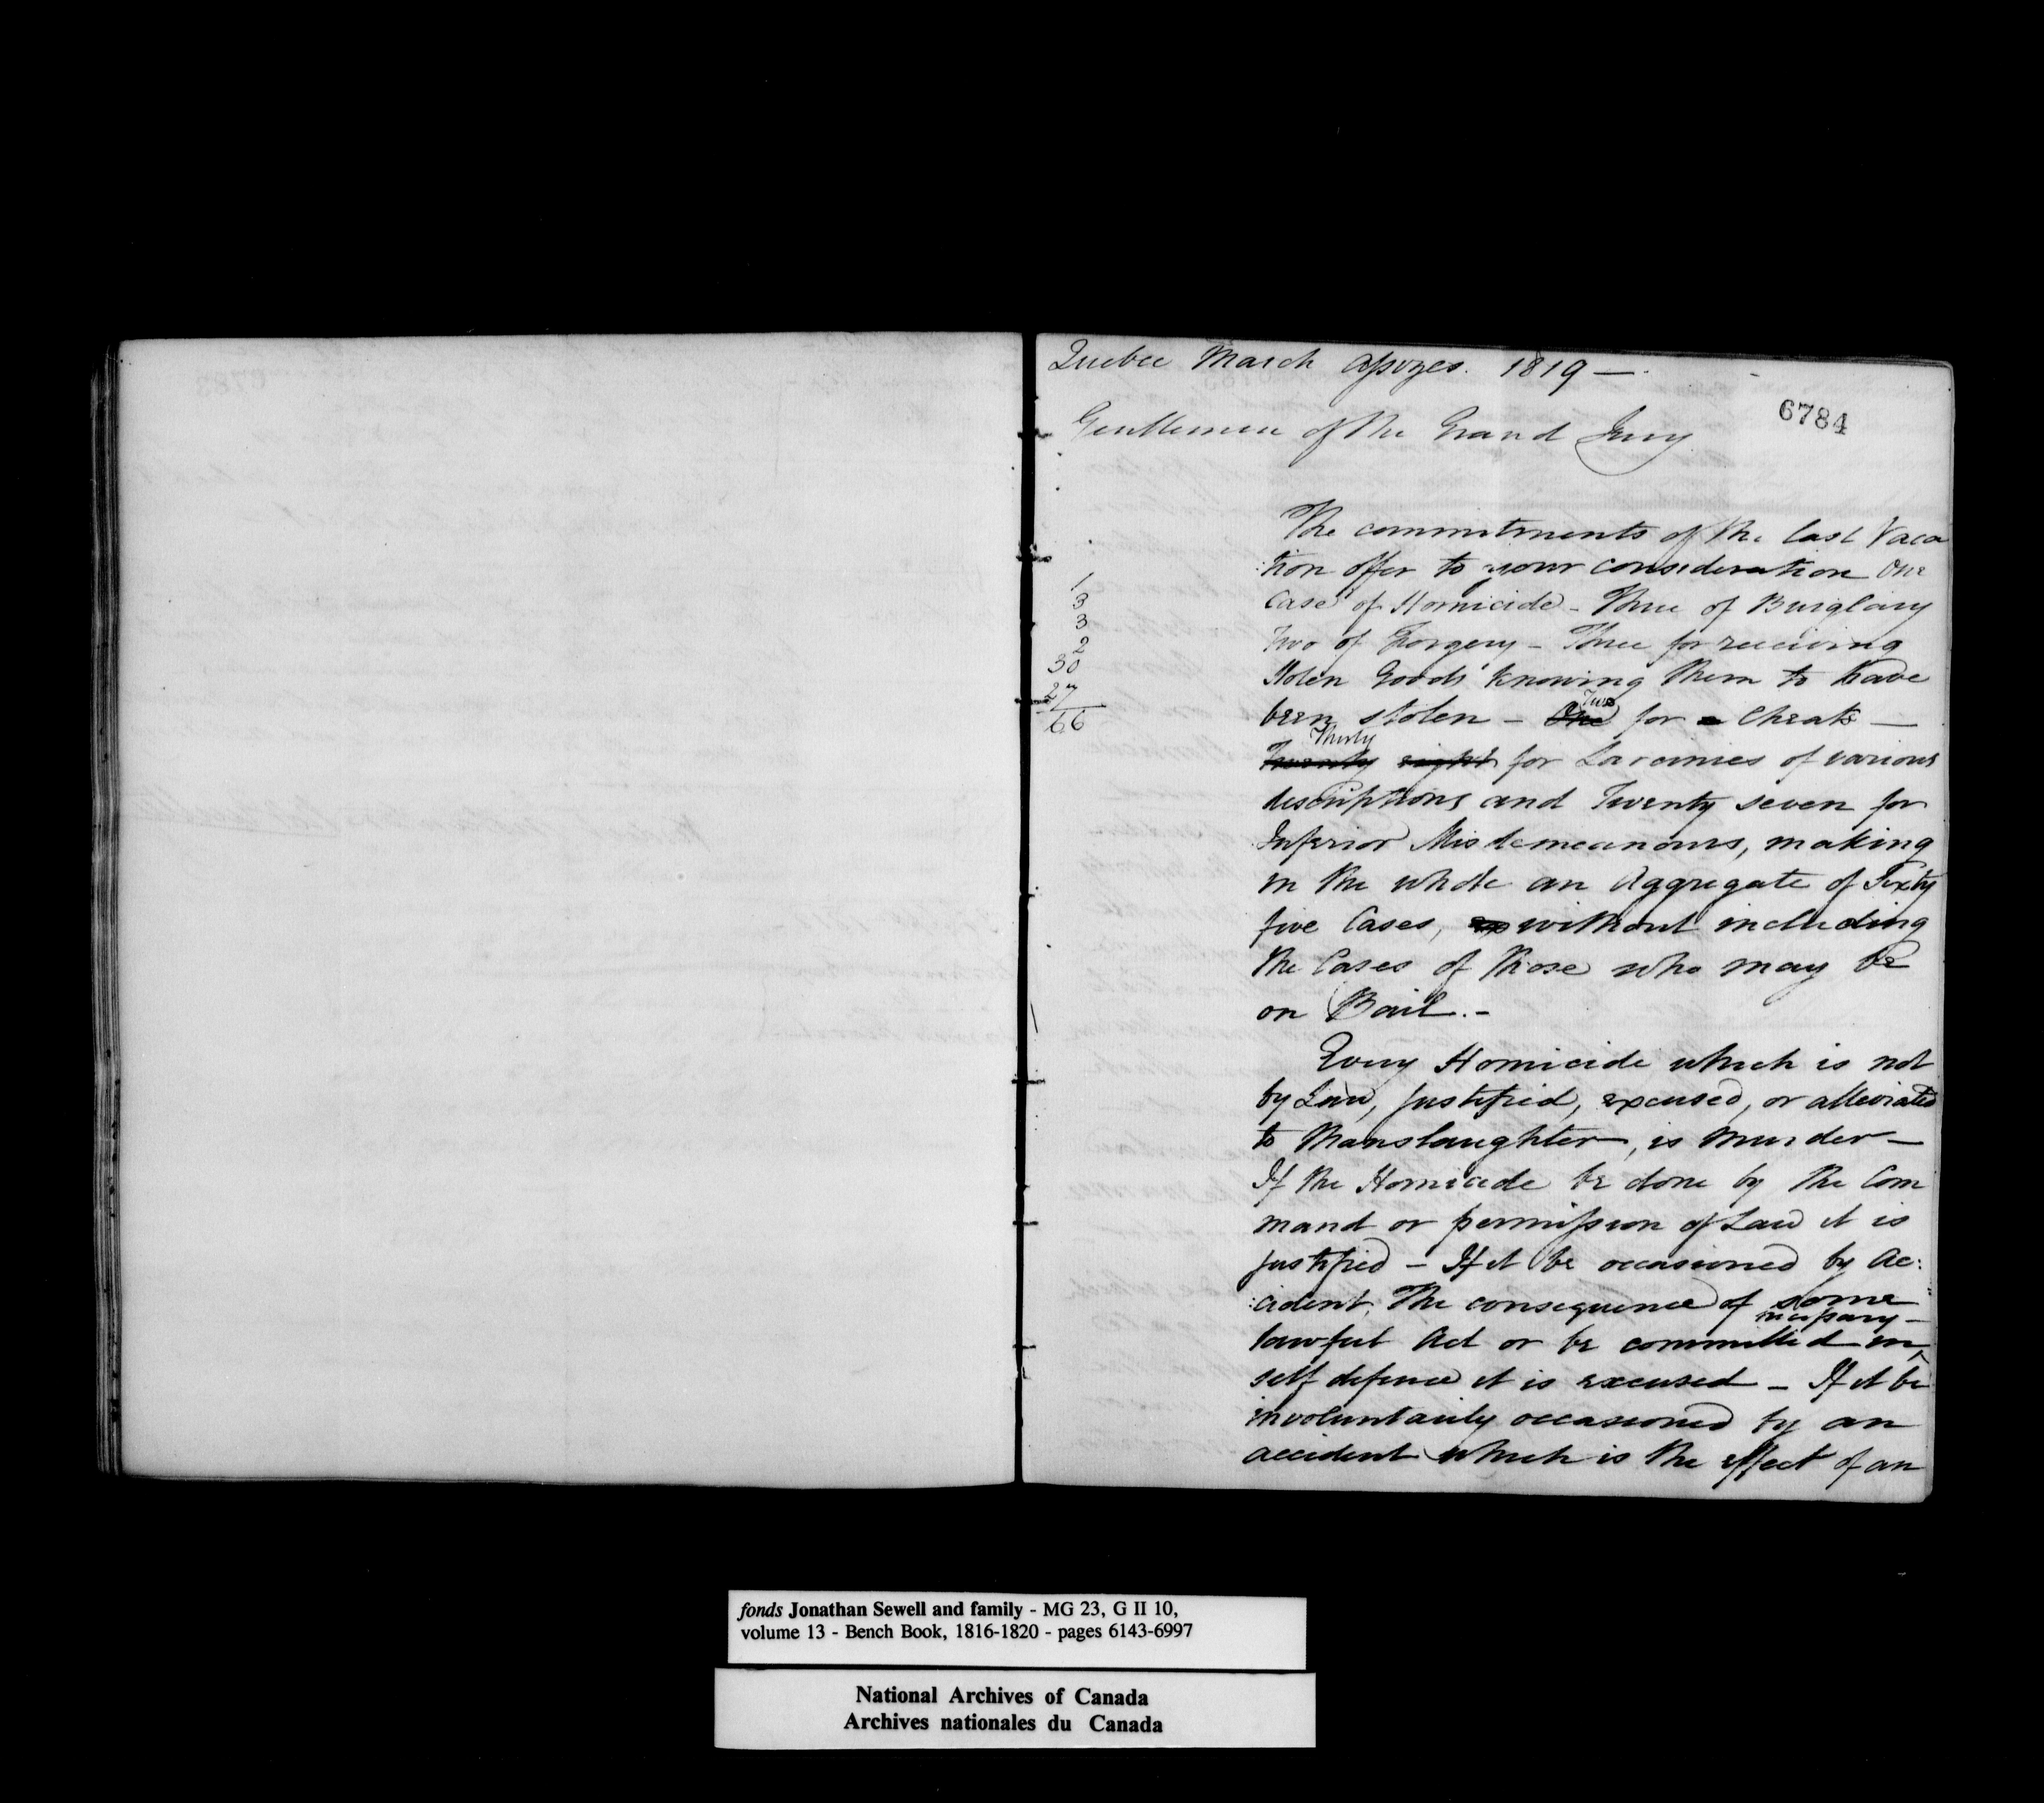 Quebec March Assizes. 1819 —
6784
Gentlemen of the Grand Jury
The commitments of the last Vaca
:tion offer to your consideration One
Case of Homicide - Three of Burglary
Two of Forgery - Three for receiving
Stolen Goods knowing them to have
been stolen - One Two for a Cheats —
Twenty eight Thirty for Larcinies of various
descriptions and Twenty seven for
Inferior Misdemeanours, making
in the whole an Aggregate of Sixty
five Cases, without including
the Cases of those who may be
on Bail. -
1
3
3
2
30
27
66
Every Homicide which is not
by Law, justified, excused, or alleviated
to Manslaughter, is Murder —
If the Homicide be done by the Com
mand or permission of Law it is
justified - If it be occasioned by Ac:
:cident, the consequence of some
lawful Act or be committed in necessary
self defence it is excused - If it be
involuntarily occasioned by an
accident which is the effect of an
fonds Jonathan Sewell and family - MG 23, G II 10,
volume 13 - Bench Book, 1816-1820 - pages 6143-6997
National Archives of Canada
Archives nationales du Canada